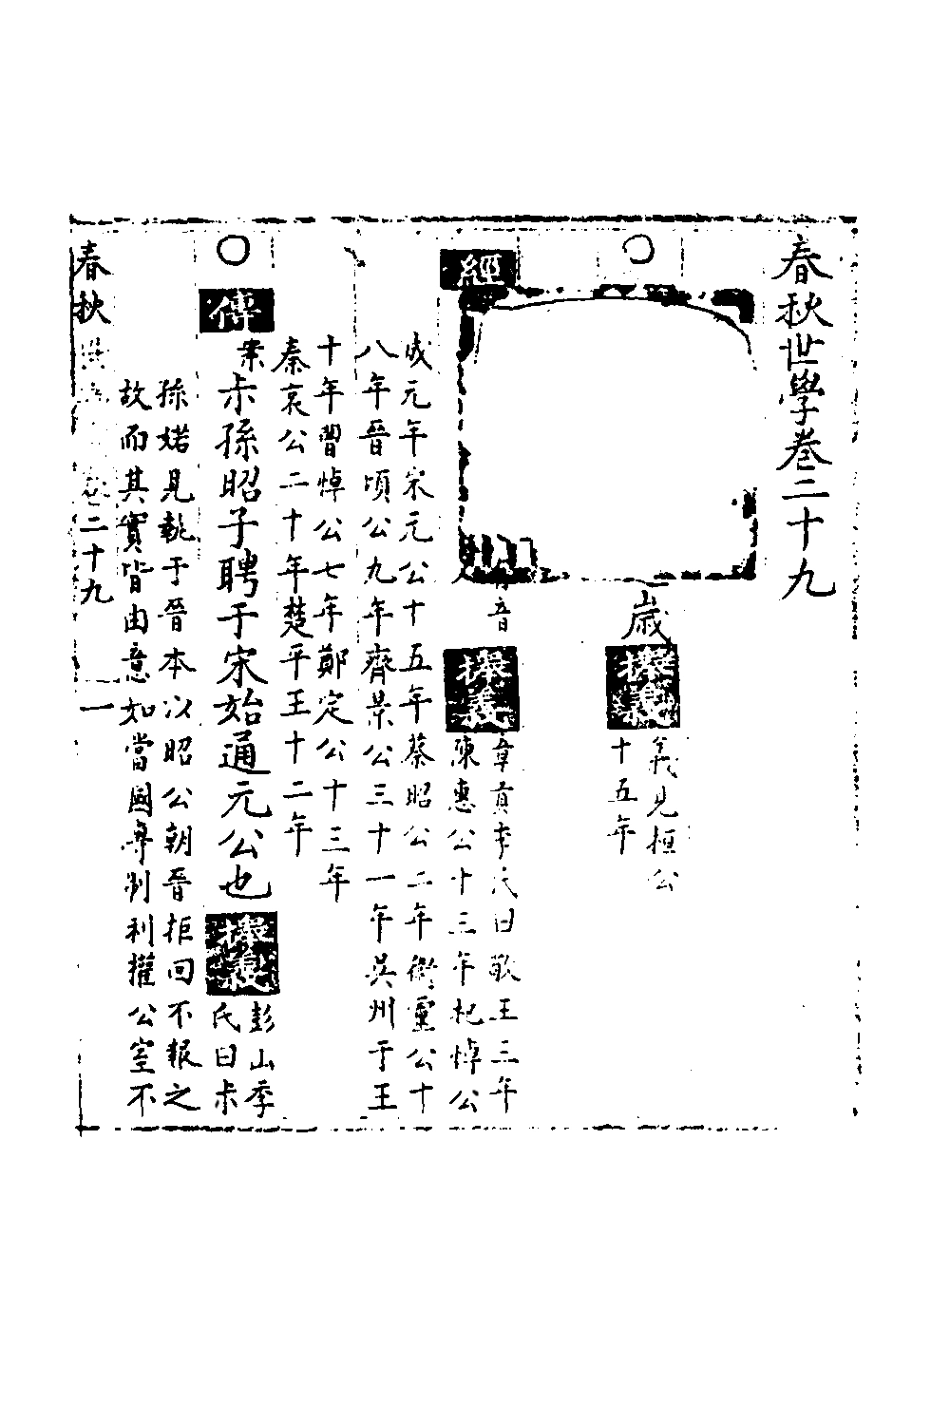 春秋世學卷二十九
○
歲
釋義
義見桓公
十五年
經
音
釋義
章貢李氏曰敬王三年
陳惠公十三年杞悼公
成元年宋元公十五年蔡昭公二年衛靈公十
八年晉頃公九年齊景公三十一年吳州于王
十年曹悼公七年鄭定公十三年
秦哀公二十年楚平王十二年
○
傳
叔孫昭子聘于宋始通元公也
釋義
彭山季
氏曰叔
孫婼見執于晉本以昭公朝晉拒回不報之
故而其實皆由意如當國專制利權公室不
春秋
卷二十九
一